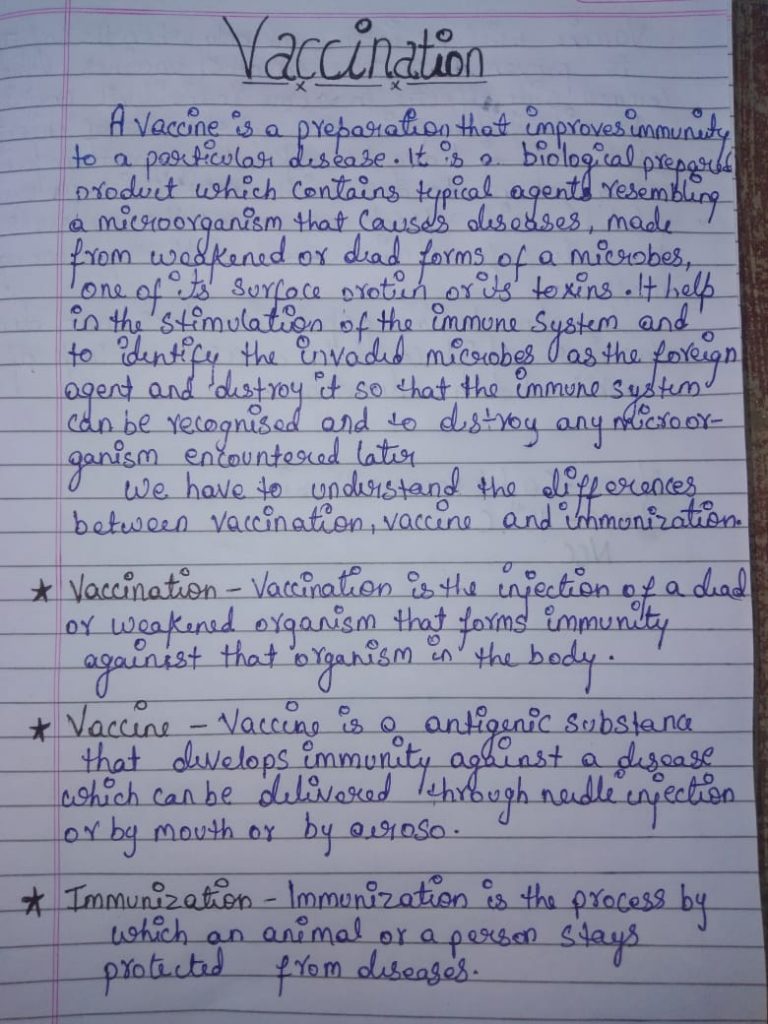 Vaccination
A vaccine is a preparation that improves immunity
to a particular disease. It is a biological prepared
product which contains typical agents resembling
a microorganism that causes diseases, made
from weakened or dead forms of a microbes,
one of its surface protien or its toxins. It help
in the stimulation of the immune system and
to identify the invaded microbes as the foreign
agent and destroy it so that the immune system
can be recognised and to destroy any microor-
ganism encountered later
We have to understand the differences
between vaccination, vaccine and immunization.
★ Vaccination - Vaccination is the injection of a dead
or weakened organism that forms immunity
against that organism in the body.
★ Vaccine - Vaccine is a antigenic substance
that develops immunity against a disease
which can be delivered through needle injection
or by mouth or by aeroso.
★ Immunization - Immunization is the process by
which an animal or a person stays
protected from diseases.